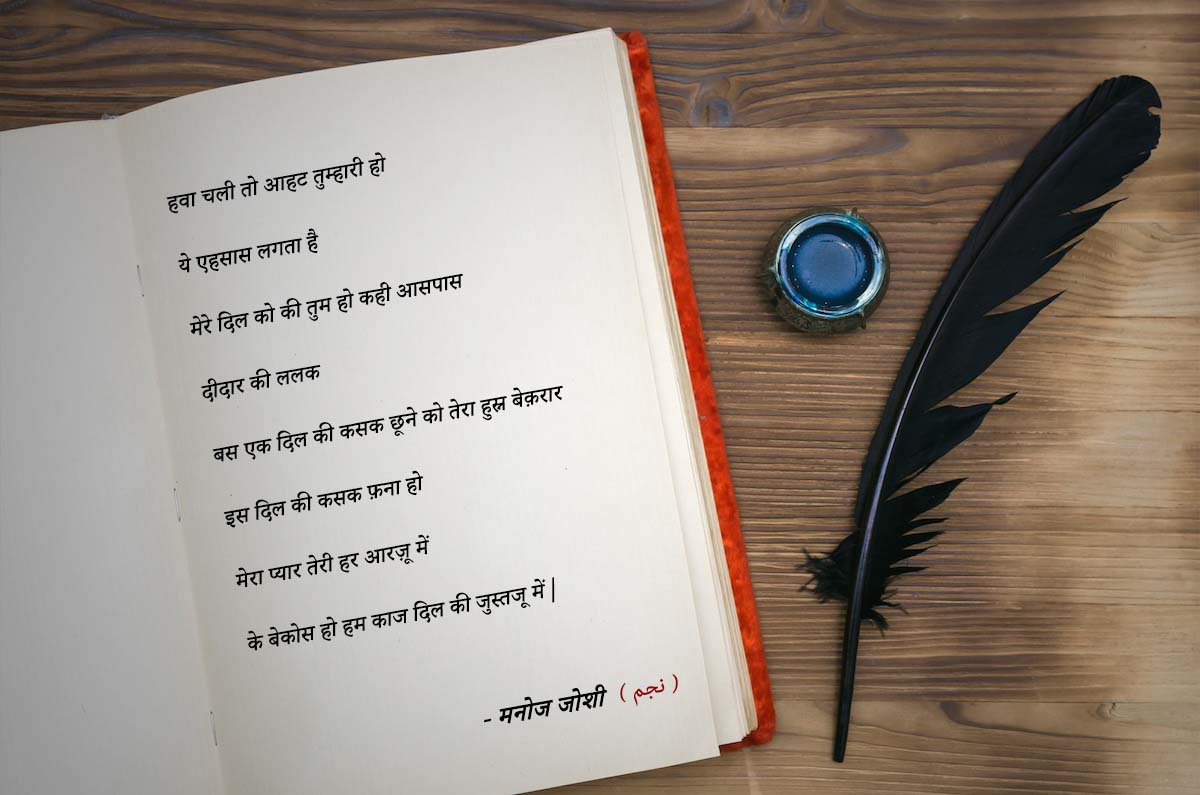 हवा चली तो आहट तुम्हारी हो
ये एहसास लगता है
मेरे दिल को की तुम हो कही आसपास
दीदार की ललक
बस एक दिल की कसक छूने को तेरा हुस्न बेक़रार
इस दिल की कसक फ़ना हो
मेरा प्यार तेरी हर आरज़ू में
के बेकोस हो हम काज दिल की जुस्तजू में |
- मनोज जोशी ( نجم )